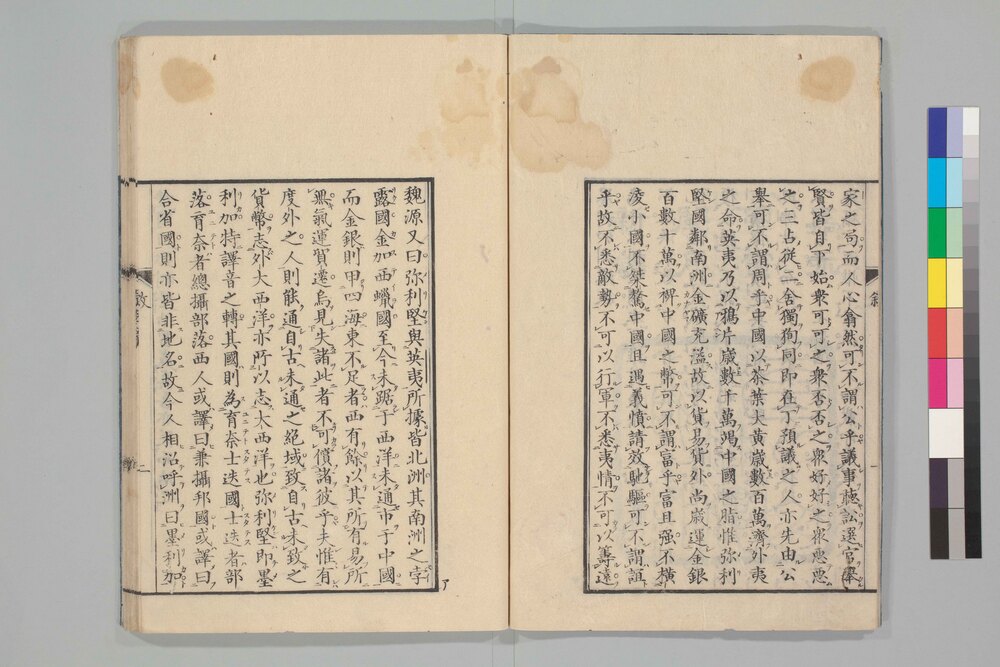 家之局而人心翕然可不謂公乎議事聽訟選官舉
賢皆自下始衆可可之衆否否之衆好好之衆惡惡
之三占從二舍獨狥同即在下預議之人亦先由公
舉可不謂周乎中國以茶葉大黃歲數百萬濟外夷
之命英夷乃以鴉片歲數千萬竭中國之脂惟弥利
堅國鄰南洲金礦充溢故以貨易貨外尚歲運金銀
百數十萬以裨中國之幣可不謂富乎富且强不橫
凌小國不桀驁中國且遇義憤請效馳驅可不謂誼
乎故不悉敵勢不可以行軍不悉夷情不可以籌遠
魏源又曰弥利堅與英夷所據皆北洲其南洲之孛
露國金加西蠟國至今未踞于西洋未通市于中國
而金銀則甲四海東不足者西有餘以其所有易所
無氣運貿遷烏見失諸此者不可償諸彼乎夫惟有
度外之人則能通自古未通之絕域致自古未致之
貨幣志外大西洋亦所以志大西洋也弥利堅即墨
利加特譯音之轉其國則為育奈士迭國士迭者部
落育奈者總攝部落西人或譯曰兼攝邦國或譯曰
合省國則亦皆非地名故今人相沿呼洲曰墨利加